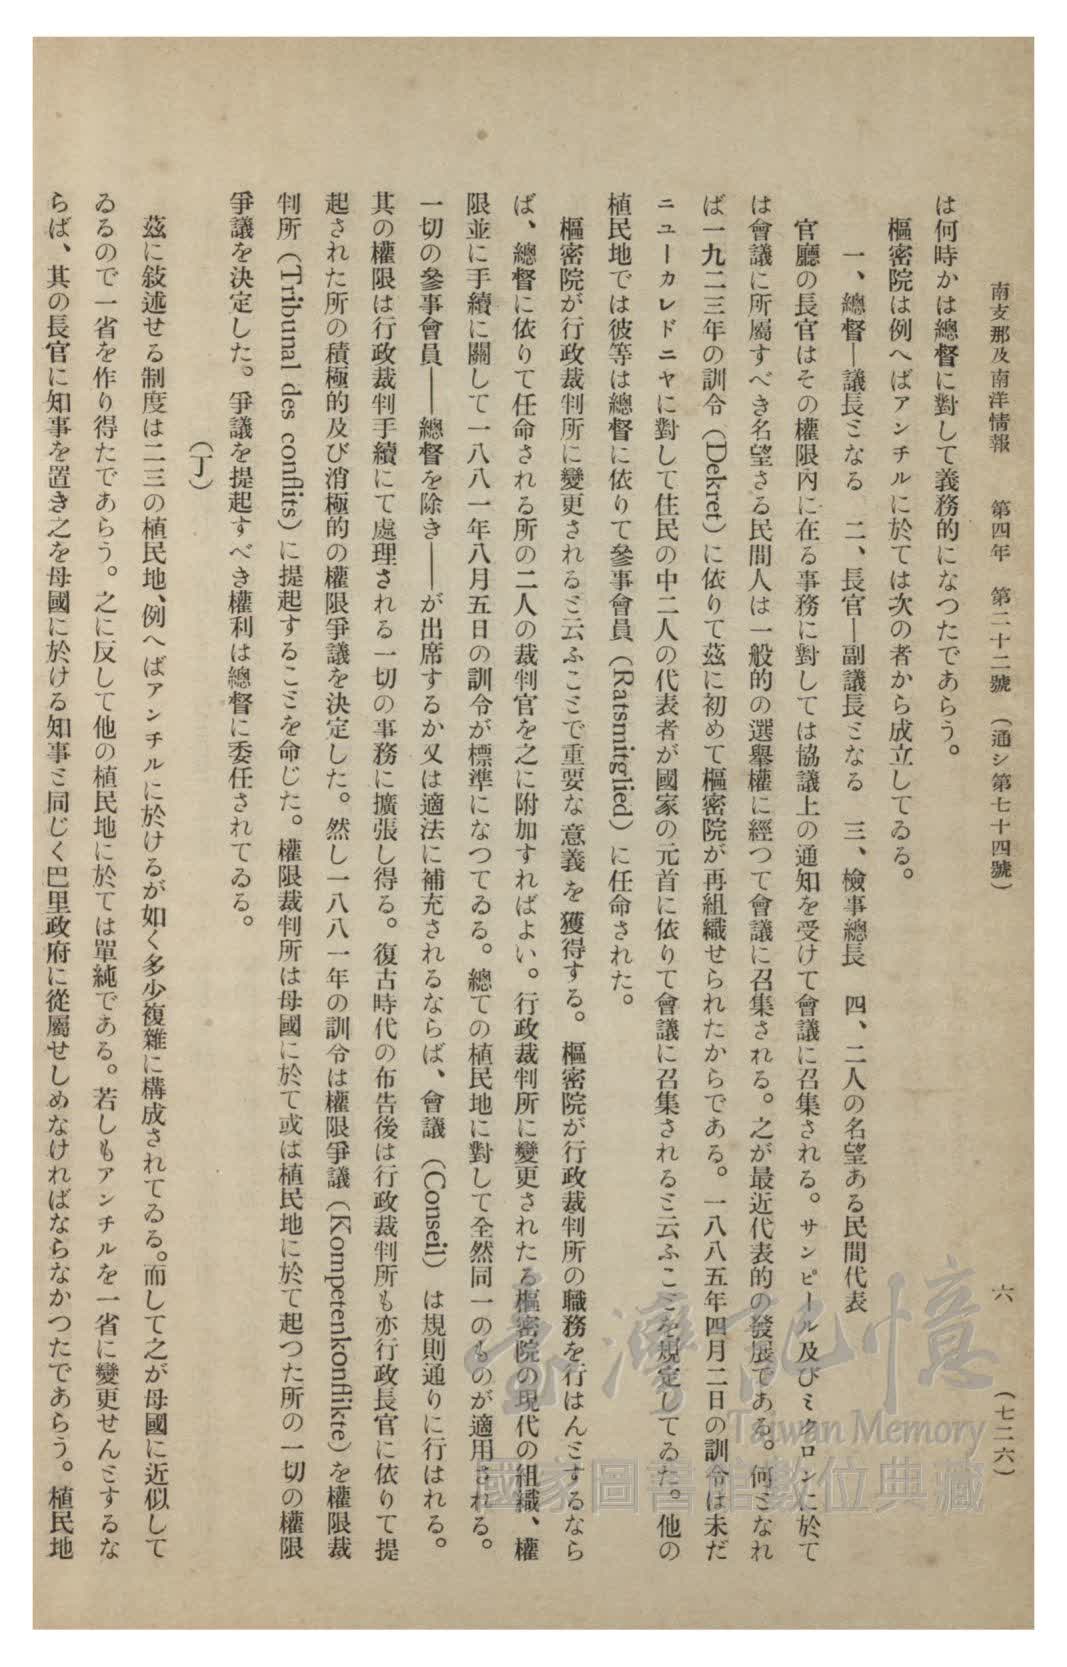 南支那及南洋情報　第四年　第二十二號　（通シ第七十四號）　六　（七二六）
は何時かは總督に對して義務的になつたであらう。
樞密院は例へばアンチルに於ては次の者から成立してゐる。
一、總督―議長ミなる　二、長官―副議長ミなる　三、檢事總長　四、二人の名望ある民間代表
官廳の長官はその權限內に在る事務に對しては協議上の通知を受けて會議に召集される。サンピール及びミクロンに於て
は會議に所屬すべき名望さる民間人は一般的の選擧權に經つて會議に召集される。之が最近代表的の發展である。何ミなれ
ば一九二三年の訓令（Dekret）に依りて茲に初めて樞密院が再組織せられたからである。一八八五年四月二日の訓令は未だ
ニューカレドニヤに對して住民の中二人の代表者が國家の元首に依りて會議に召集されるミ云ふこミを規定してゐた。他の
植民地では彼等は總督に依りて參事會員（Ratsmitglied）に任命された。
樞密院が行政裁判所に變更されるミ云ふこミで重要な意義を獲得する。樞密院が行政裁判所の職務を行はんミするなら
ば、總督に依りて任命される所の二人の裁判官を之に附加すればよい。行政裁判所に變更されたる樞密院の現代の組織、權
限並に手續に關して一八八一年八月五日の訓令が標準になつてゐる。總ての植民地に對して全然同一のものが適用される。
一切の參事會員――總督を除き――が出席するか又は適法に補充されるならば、會議（Conseil）は規則通りに行はれる。
其の權限は行政裁判手續にて處理される一切の事務に擴張し得る。復古時代の布告後は行政裁判所も亦行政長官に依りて提
起された所の積極的及び消極的の權限爭議を決定した。然し一八八一年の訓令は權限爭議（Kompetenkonflikte）を權限裁
判所（Tribunal des conflits）に提起するこミを命じた。權限裁判所は母國に於て或は植民地に於て起つた所の一切の權限
爭議を決定した。爭議を提起すべき權利は總督に委任されてゐる。
（丁）
茲に敍述せる制度は二三の植民地、例へばアンチルに於けるが如く多少複雜に構成されてゐる。而して之が母國に近似して
ゐるので一省を作り得たであらう。之に反して他の植民地に於ては單純である。若しもアンチルを一省に變更せんミするな
らば、其の長官に知事を置き之を母國に於ける知事ミ同じく巴里政府に從屬せしめなければならなかつたであらう。植民地
臺灣記憶
Taiwan Memory
國家圖書館數位典藏